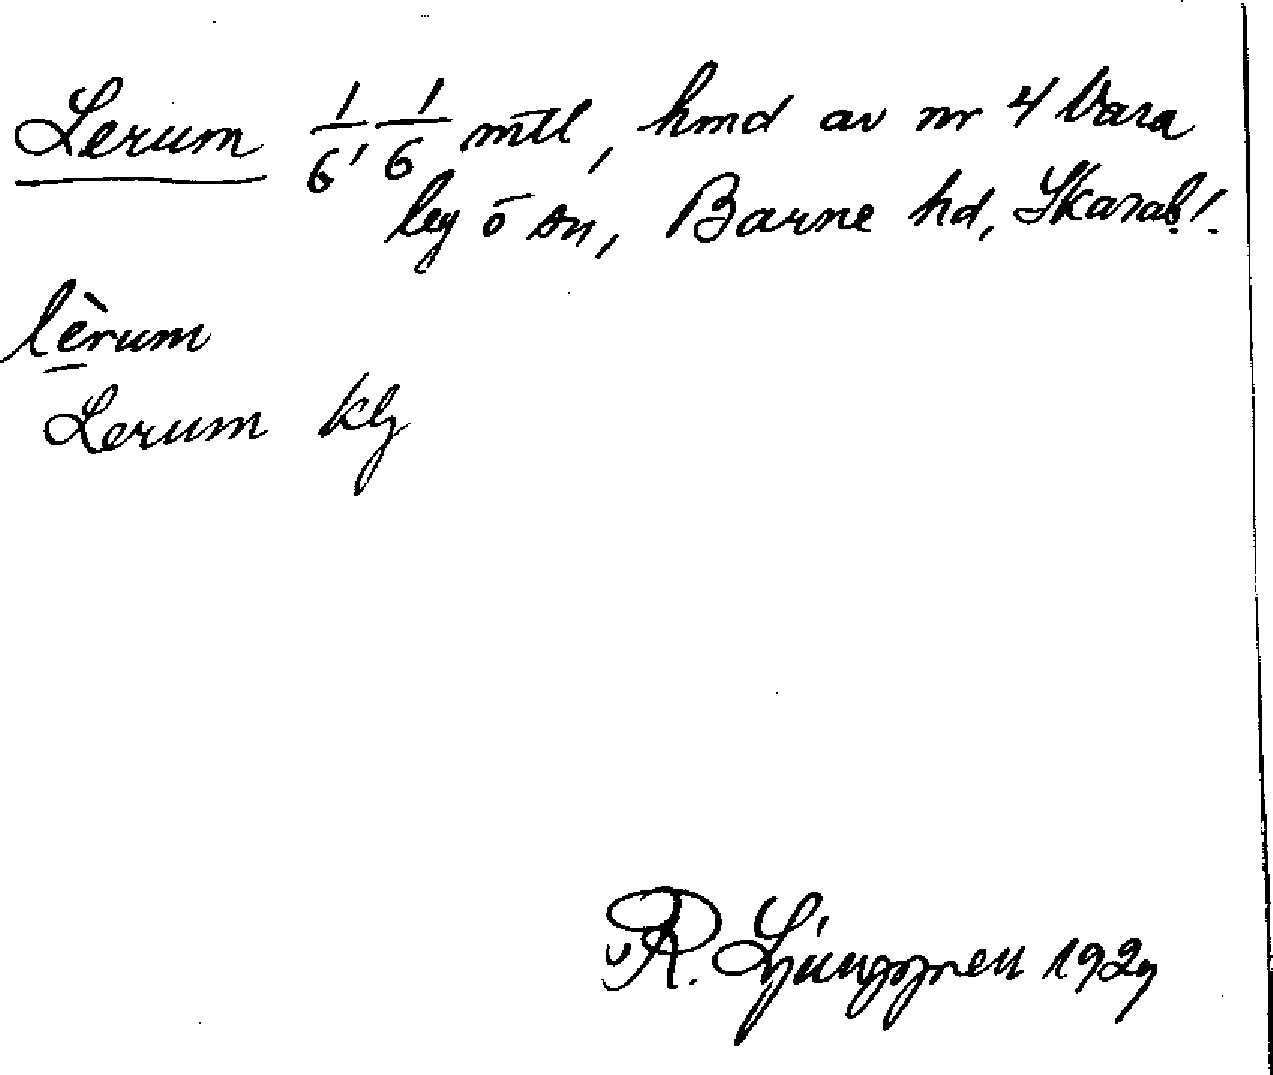 Lerum 1/6, 1/6 mtl, hmd av nr 4 Vara
leg o sn, Barne hd, Skarab!.
lèrum
Lerum klj
R. Ljunggren 1929